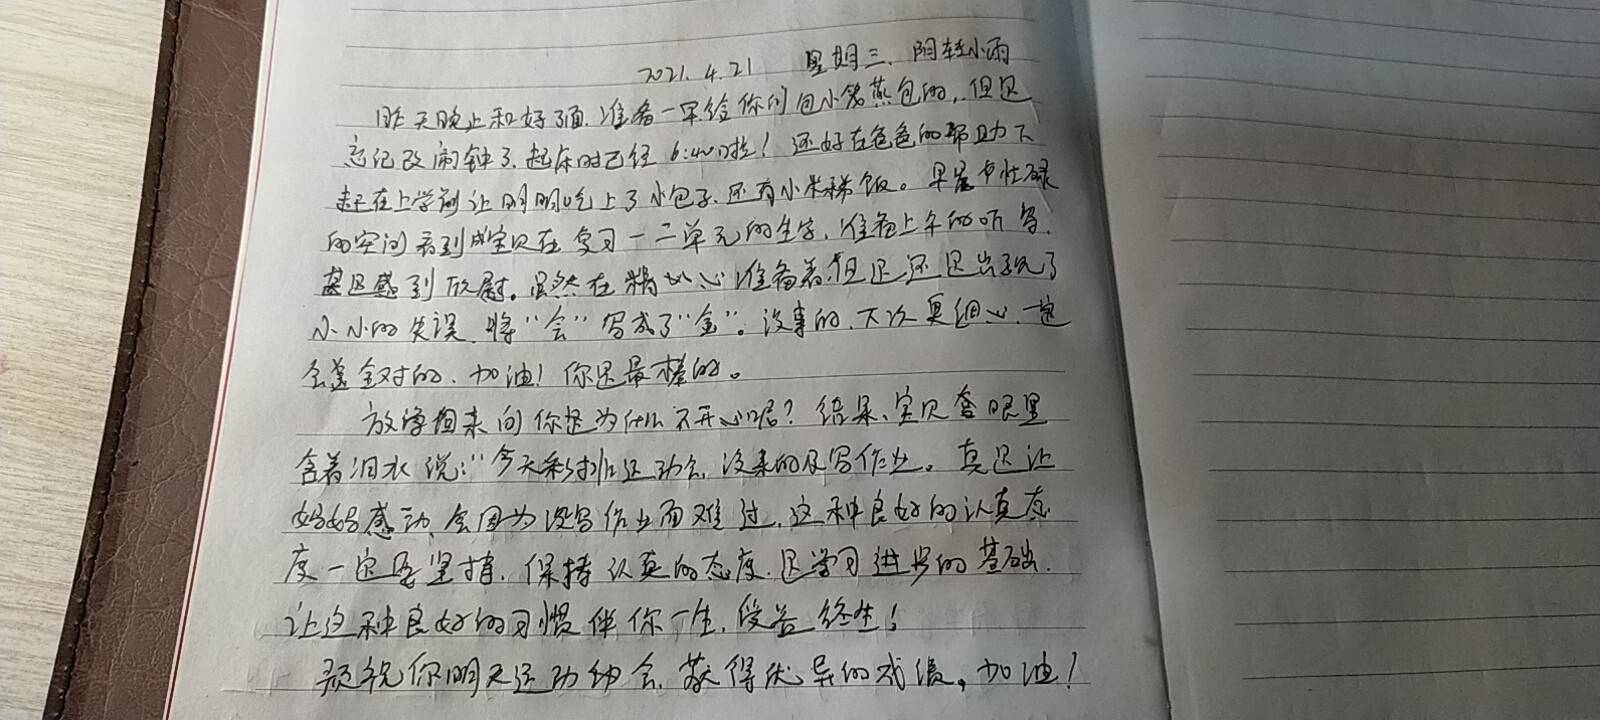 2021.4.21 星期三、阴转小雨
昨天晚上和好了面、准备一早给你们包小笼蒸包的,但是
忘记改闹钟了、起床时已经6:40啦!还好在爸爸的帮助下
赶在上学前让明明吃上了小包子、还有小米稀饭。早晨忙碌
的空间看到成宝贝在复习一二单元的生字、准备上午的听写、
甚是感到欣慰。虽然在精心准备着、但是还是出现了
小小的失误、将“会”写成了“金”。没事的、下次更细心、一定
会是全对的、加油!你是最棒的。
放学接来问你是为什么不开心呢?结果、宝贝眼里
含着泪水说:“今天彩排运动会、没来的及写作业。真是让
妈妈感动、会因为没写作业而难过、这种良好的认真态
度一定要坚持、保持认真的态度、是学习进步的基础、
让这种良好的习惯伴你一生、受益终生!
预祝你明天运动会、获得优异的成绩。加油!